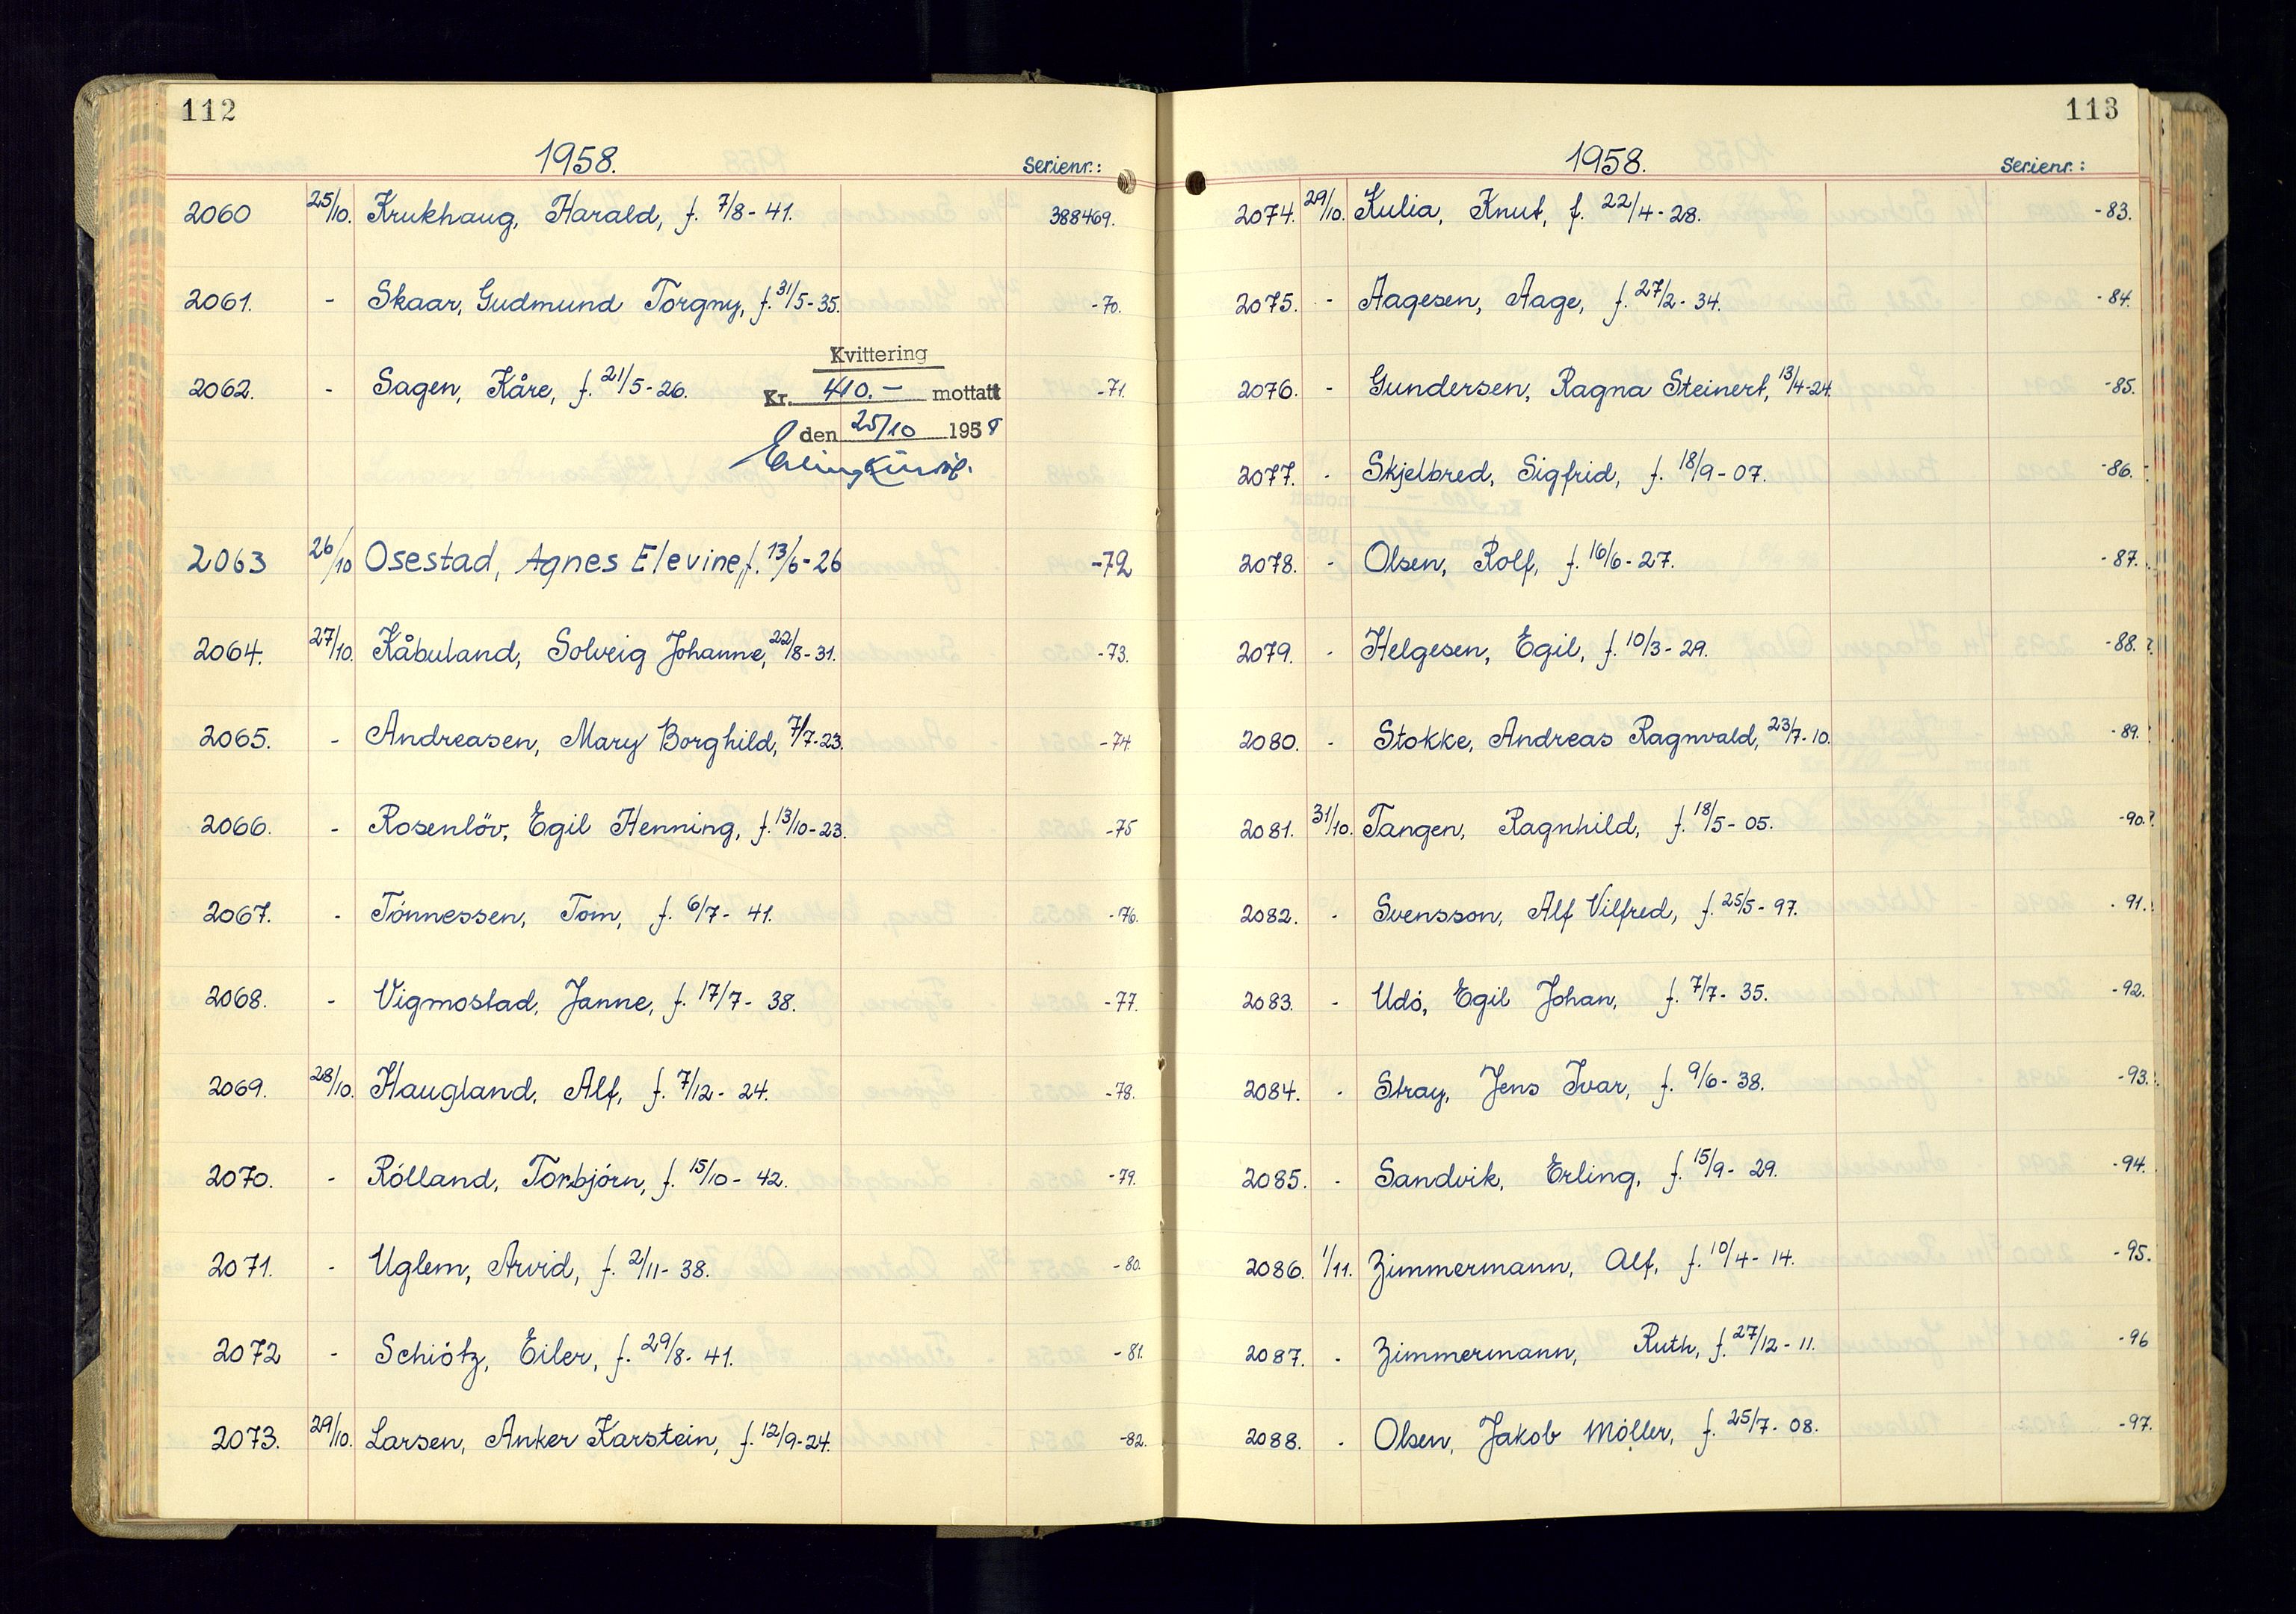 112
1958.
Serienr.:
2060 25/10. Krukhaug, Harald, f. 7/8-41. 388469.
2061. - Skaar, Gudmund Torgny, f. 31/5-35. -70.
2062. - Sagen, Kåre, f. 21/5-26. -71.
Kvittering
Kr. 410.- mottatt
den 25/10 1958
Erling
2063 26/10 Osestad, Agnes Elevine, f. 13/6-26 -72
2064. 27/10. Kåbuland, Solveig Johanne, 22/8-31. -73.
2065. - Andreasen, Mary Borghild, 7/7-23. -74
2066. - Rosenlöv, Egil Henning, f. 13/10-23. -75
2067. - Tónnessen, Tom, f. 6/7-41. -76.
2068. - Vigmostad, Janne, f. 17/7-38. -77.
2069. 28/10. Haugland, Alf, f. 7/12-24. -78.
2070. - Rólland, Torbjórn, f. 15/10-42. -79.
2071. - Uglem, Arvid, f. 2/11-38. -80.
2072 - Schiótz, Eiler, f. 29/8-41. -81.
2073. 29/10. Larsen, Anker Karstein, f. 12/9-24. -82.
113
1958.
Serienr.:
2074. 29/10. Kulia, Knut, f. 22/4-28. -83.
2075. - Aagesen, Aage, f. 27/2-34. -84.
2076. - Gundersen, Ragna Steinert, 13/4-24. -85.
2077. - Skjelbred, Sigfrid, f. 18/9-07. -86.
2078. - Olsen, Rolf, f. 16/6-27. -87.
2079. - Helgesen, Egil, f. 10/3-29. -88.
2080. - Stokke, Andreas Ragnvald, 23/7-10. -89.
2081. 31/10. Tangen, Ragnhild, f. 18/5-05. -90.
2082. - Svensson, Alf Vilfred, f. 25/5-97. -91.
2083. - Udó, Egil Johan, f. 7/7-35. -92.
2084. - Stray, Jens Ivar, f. 9/6-38. -93.
2085. - Sandvik, Erling, f. 15/9-29. -94.
2086. 1/11. Zimmermann, Alf, f. 10/4-14. -95.
2087. - Zimmermann, Ruth, f. 27/12-11. -96
2088. - Olsen, Jakob Móller, f. 25/7-08. -97.